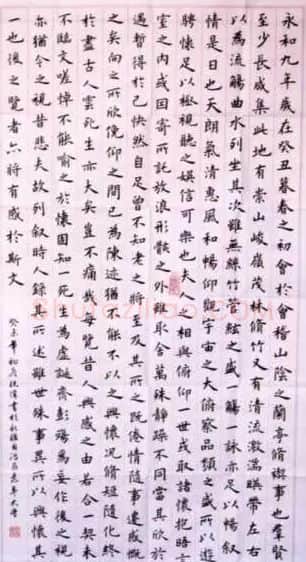 永和九年歲在癸丑暮春之初會於會稽山陰之蘭亭脩禊事也羣賢
至少長咸集此地有崇山峻嶺茂林脩竹又有清流激湍暎帶左右
以為流觴曲水列坐其次雖無絲竹管絃之盛一觴一詠亦足以暢敘
情是日也天朗氣清惠風和暢仰觀宇宙之大俯察品類之盛所以遊
騁懷足以極視聽之娛信可樂也夫人之相與俯仰一世或取諸懷抱晤言
室之內或因寄所託放浪形骸之外雖取舍萬殊靜躁不同當其欣於
遇暫得於己快然自足曾不知老之將至及其所之既惓情隨事遷感慨
之矣向之所欣俛仰之間已為陳迹猶不能不以之興懷況脩短隨化終
於盡古人雲死生亦大矣豈不痛哉每覽昔人興感之由若合一契未
不臨文嗟悼不能喻之於懷固知一死生為虛誕齊彭殤為妄作後之視
亦猶今之視昔悲夫故列敘時人錄其所述雖世殊事異所以興懷其
一也後之覽者亦將有感於斯文